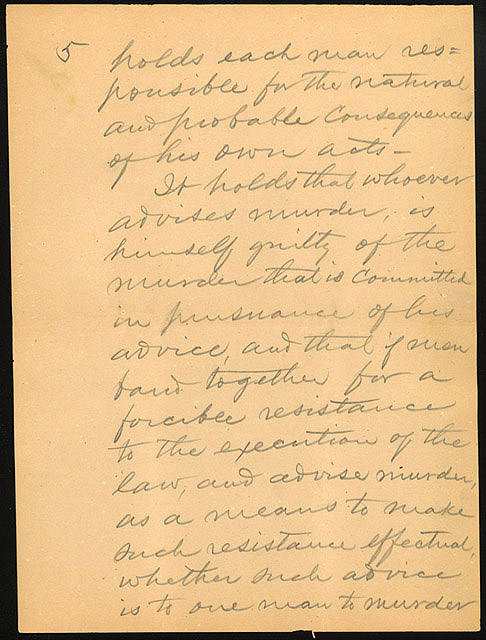 5 holds each man res=
ponsible for the natural
and probable Consequences
of his own acts –
It holds that whoever
advises murder, is
himself guilty of the
murder that is Committed
in pursuance of his
advice, and that if men
band together for a
forcible resistance
to the execution of the
law, and advise murder,
as a means to make
such resistance effectual,
whether such advice
is to one man to murder